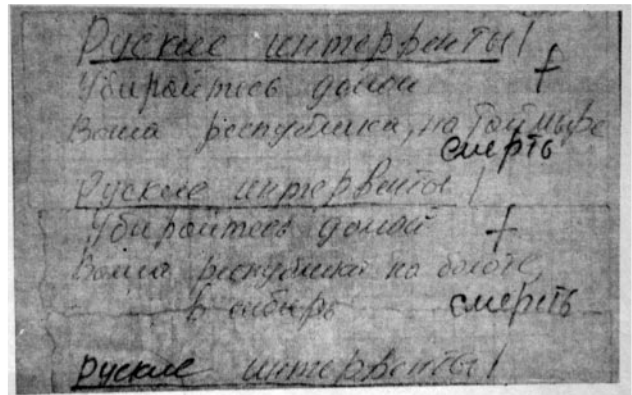 Руские интерфенты!
Убирайтесь домой
Ваша республика, на Таймыре
смерть
Руские интервенты!
Убирайтесь домой
Ваша республика на болоте,
в сибирь смерсть
руские интервенты!